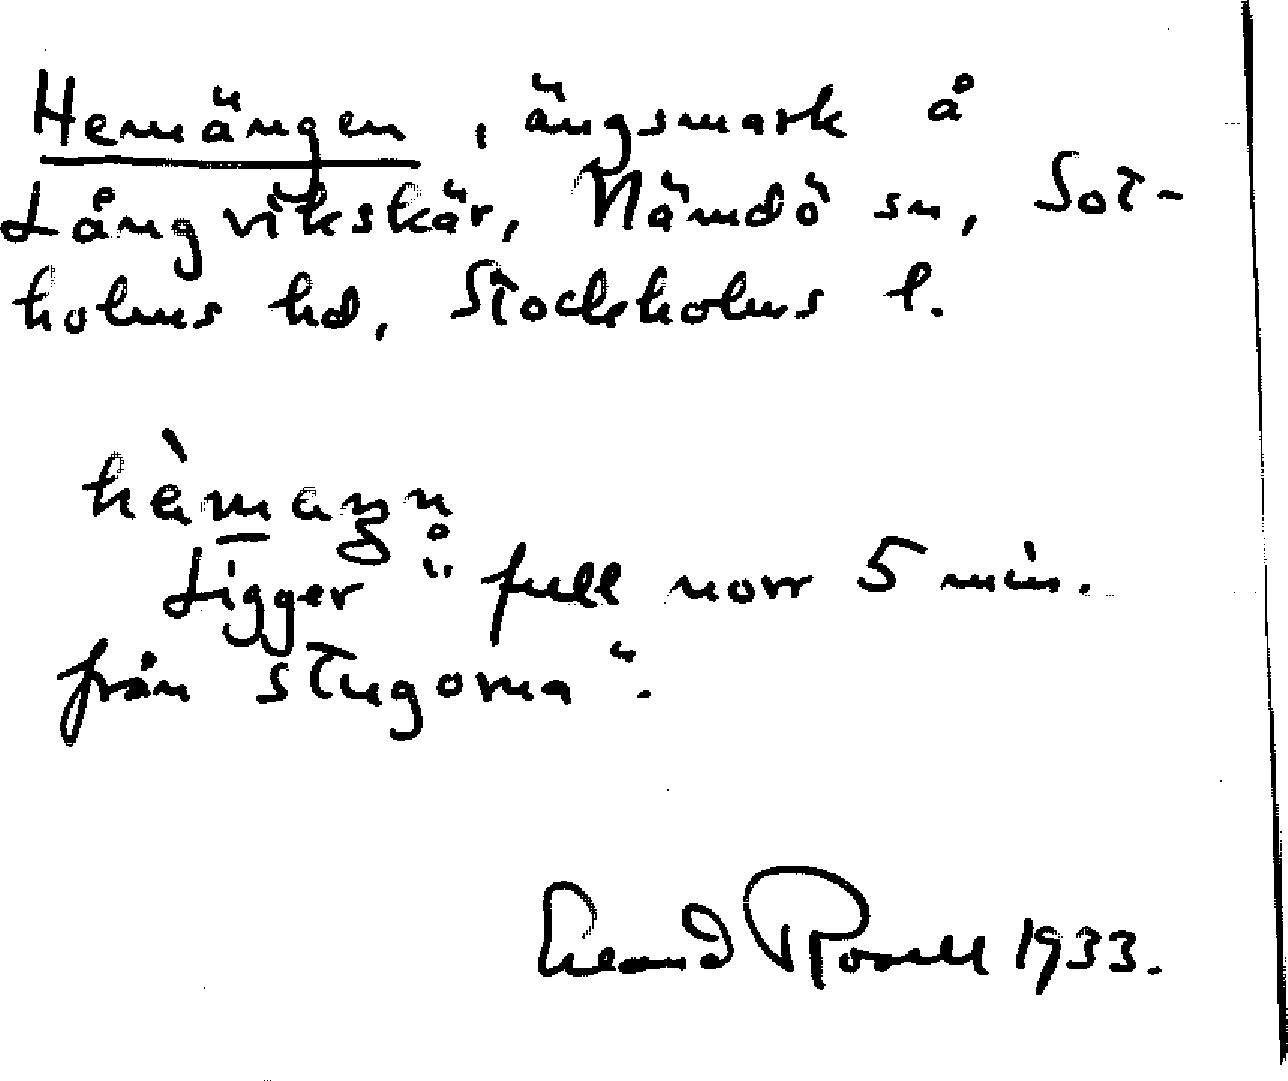 Hemängen, ängsmark å
Långvikskär, Nämdö sn, Sot-
holms hd, Stockholms l.
Ligger "full norr 5 min.
från stugorna".
Erland Rosell 1933.